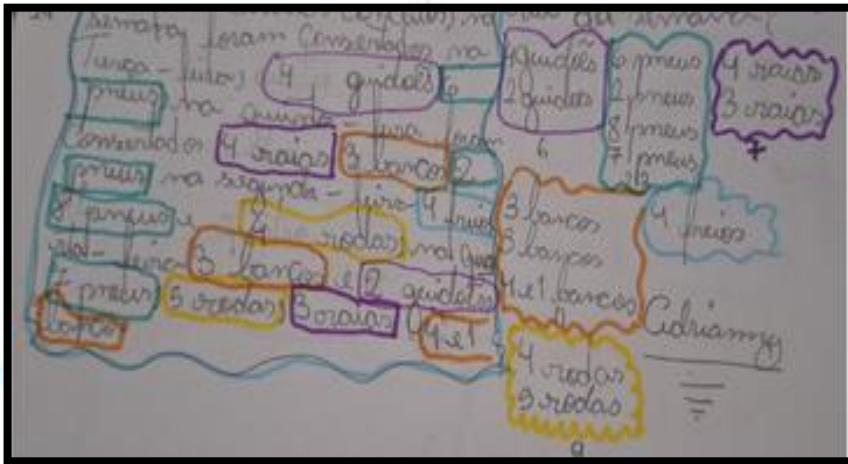 semana, foram Consertados na
Terça-feira, 4 guidoẽs 6
pneus, na quinta-feira foram
Consertados 4 raias 3 bancos 2
pneus na segunda-feira 4 freios
8 pneus e 4 rodas, na qua
rta-feira 3 bancos e 2 guidoẽs
7 pneus 5 rodas, 3 raias 4 e 1
banco
4 guidoẽs
2 guidoẽs
6
6 pneus
2 pneus
8 pneus
7 pneus
23
4 raias
3 raias
7
3 bancos
3 bancos
4 e 1 bancos
4 freios
4 rodas
5 rodas
9